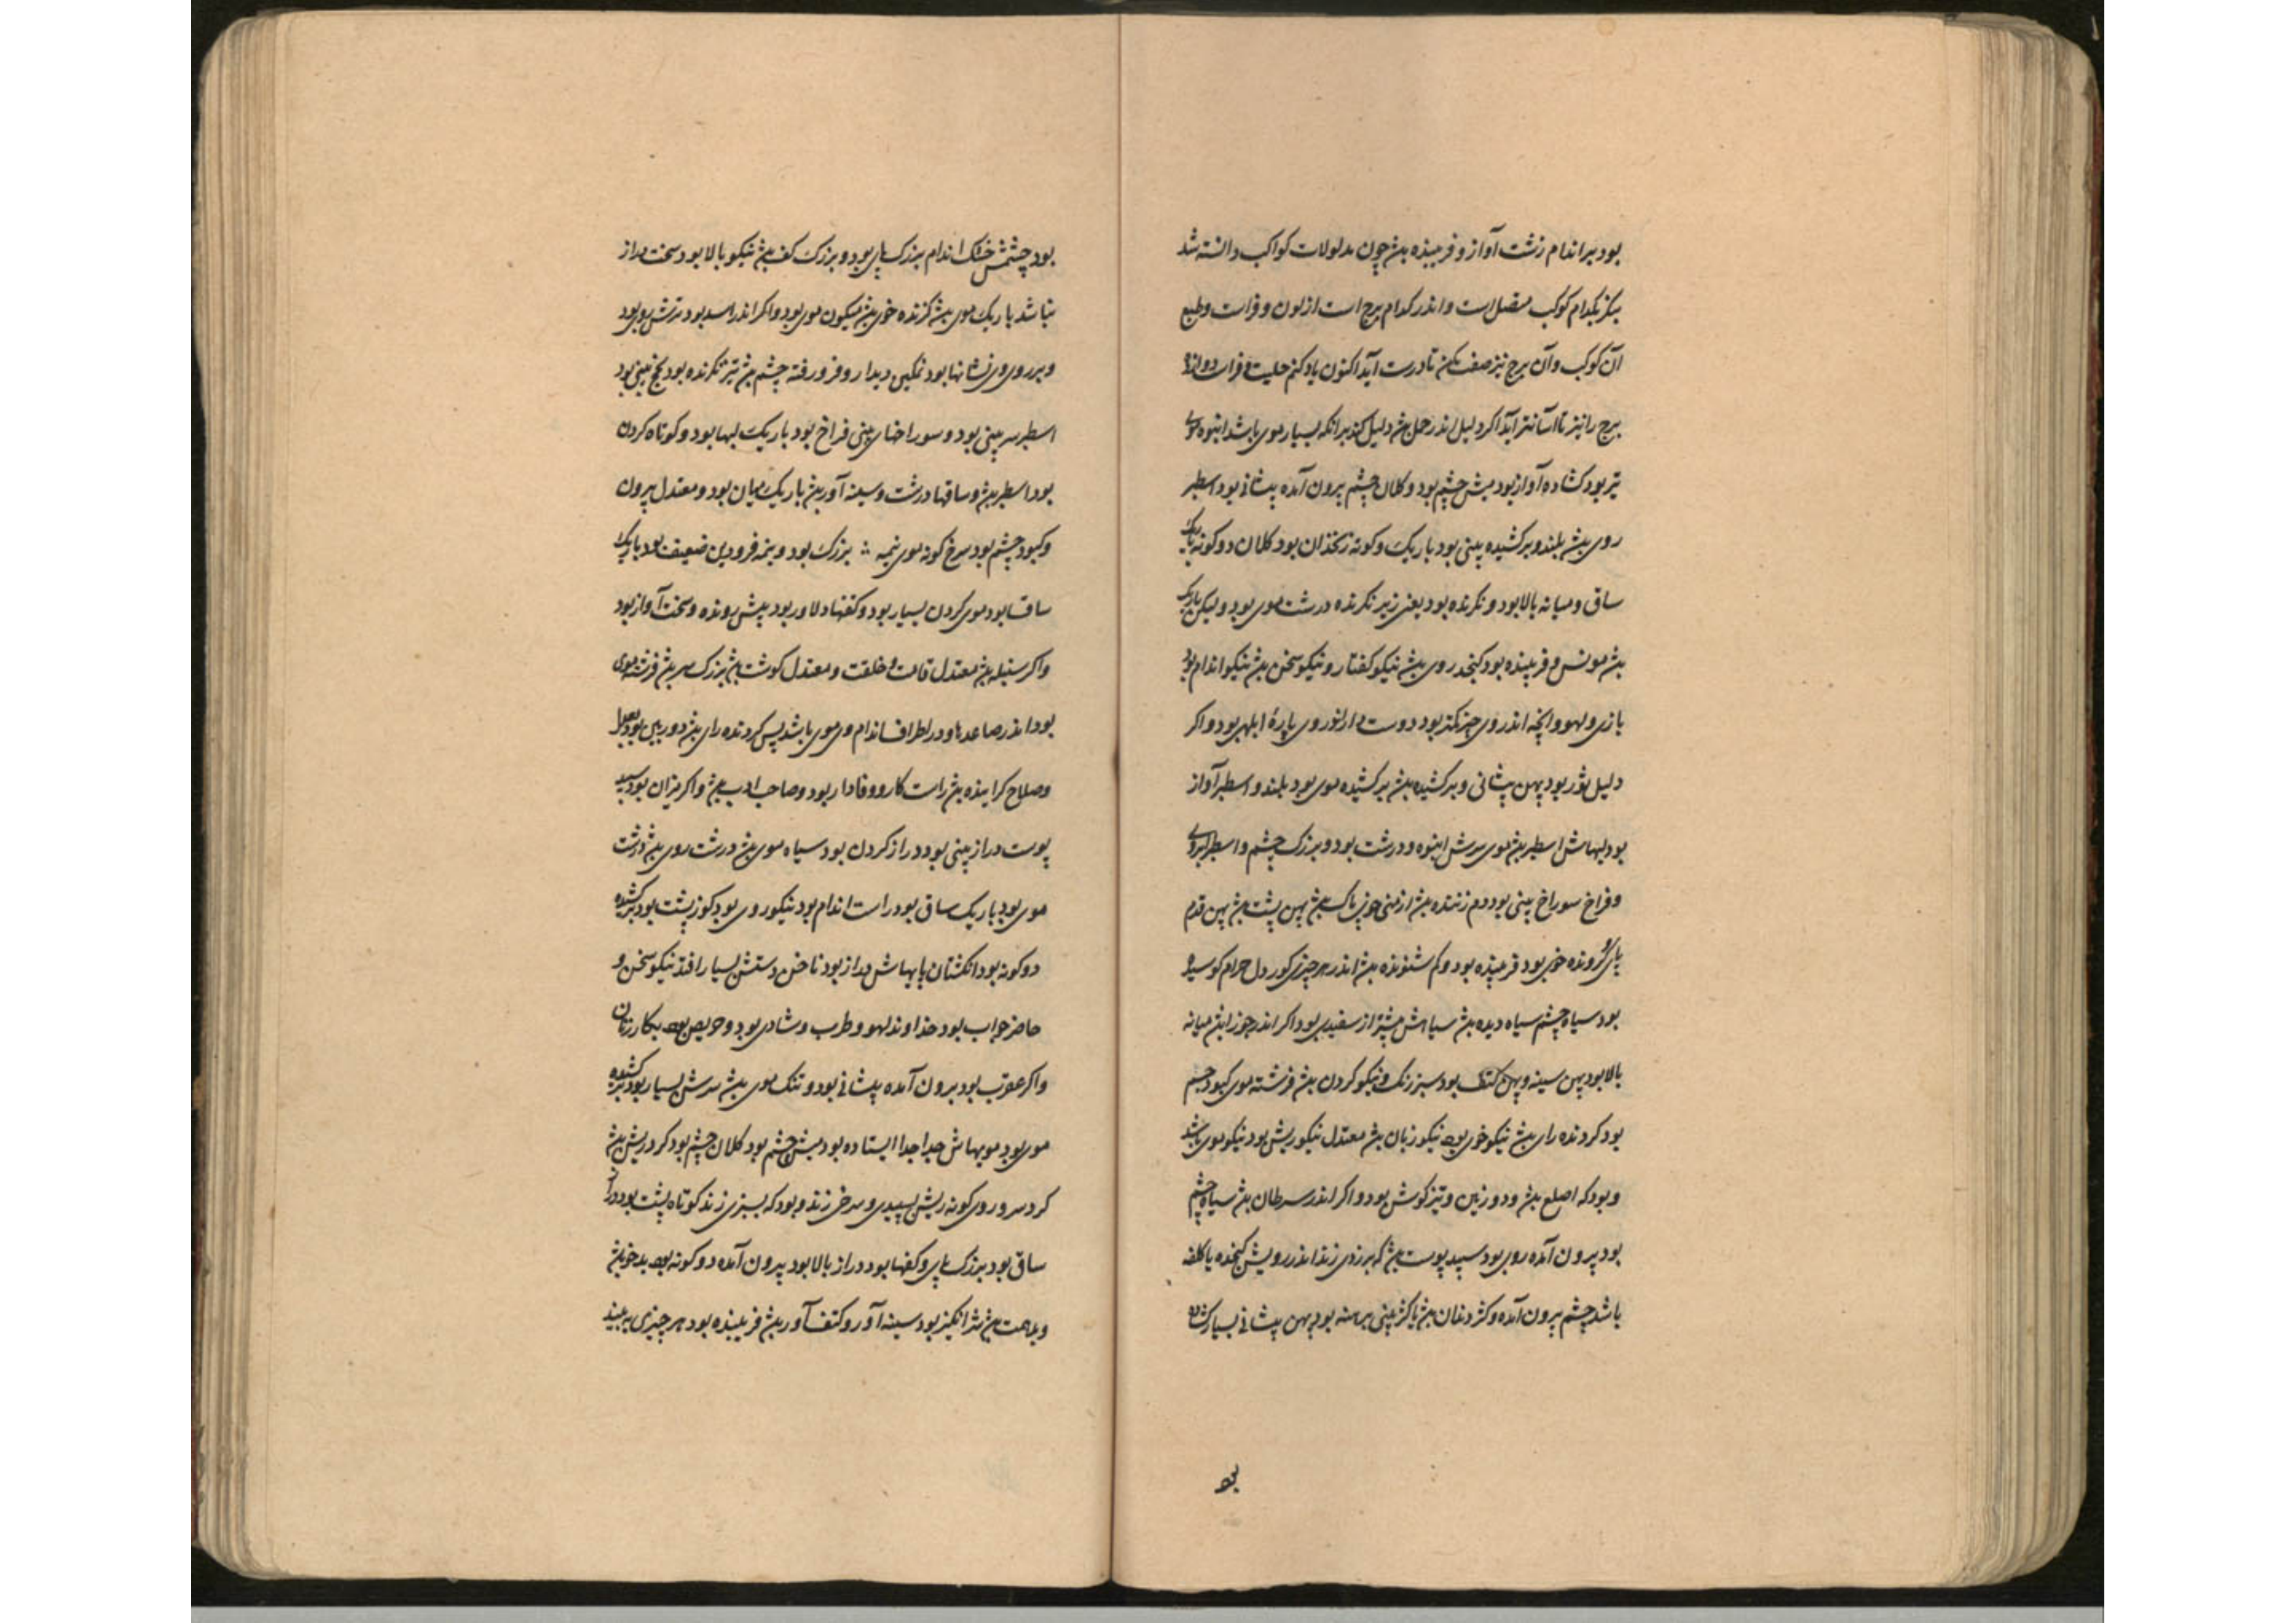 بود بر اندام زشت آواز و فریبنده بش چون مدلولات کواکب دانسته شد
بنگر بکدام کوکب متصل است و اندر کدام برج است از لون و فراست و طبع
آن کوکب و آن برج نیز صفت کن تا درست آید اکنون یاد کنم حلیت و فراست دوازده
برج را نیز تا آسانتر آید اگر دلیل اندر حمل بش دلیل کند برانکه بسیار موی باشد انبوه موی
تیر بود کشاده آواز بود میش چشم بود و کلان چشم بیرون آمده پیشانی بود اسطبر
روی بش بلند و برکشیده بینی بود باریک و کوته زنخدان بود کلان دو کونه باریک
ساق و میانه بالا بود و نکرنده بود یعنی زیر نکرنده درشت موی بود و لیکن باریک
بش مونس و فریبنده بود کنجد روی بش نیکو کفتار و نیکو سخن بش نیکو اندام بود
بازی و لهو و انچه اندر وی بود دوست دارد اندر وی پارهٔ ابلهی بود و اکر
دلیل ثور بود پهن پیشانی و برکشیده بش برکشیده موی بود بلند و اسطبر آواز
بود لبهاش اسطبر بش موی سرش انبوه و درشت بود و بزرک چشم و اسطبر ابروی
و فراخ سوراخ بینی بود دم زننده بش از بینی پهن پشت بش پهن قدم
پای رونده خوی بود فریبنده بود و کم شنونده بش اندر هر چیزی کور دل
بود سیاه چشم سیاه دیده بش سیاهش بیشتر از سفیدی بود اکر اندر جوزا بش میانه
بالا بود پهن سینه و پهن کتف بود سبز رنک و نیکو کردن بش فرشته موی کبود چشم
بود کردنده رای بش نیکو خوی بود نیکو زبان بش معتدل نیکو ریش بود نیکو موی باشد
و بود که اصلع بش و دوربین و تیز کوش بود و اکر اندر سرطان بش سیاه چشم
بود بیرون آمده روی بود سپید پوست بش که بزردی زند اندر رویش کنجده یا کلفه
باشد چشم بیرون آمده و کژ دندان بش یا کژ بینی برهنه بود پهن پیشانی بسیار کشاده
بود
بود چشمش خشک اندام بزرک پای بود و بزرک کف بش نیکو بالا بود سخت دراز
نباشد باریک موی بش کزنده خوی بش میکون موی بود و اکر اندر اسد بود ترش روی بود
و بر روی وی نشانها بود نمکین دیدار و فرو رفته چشم بش تیز نکرنده بود کج بینی بود
اسطبر سر بینی بود و سوراخهای بینی فراخ بود باریک لبها بود و کوتاه کردن
بود اسطبر بش و ساقها درشت و سینه آور بش باریک میان بود و معتدل بیرون
و کبود چشم بود سرخ کونه موی نیمه بزرک بود و نیمه فرودین ضعیف بود باریک
ساقها بود موی کردن بسیار بود و کتفها دلاور بود پیش رونده و سخت آواز بود
و اکر سنبله بش معتدل قامت و خلقت و معتدل کوشت بش بزرک سر بش فرشته موی
بود اندر صاعدها و در اطراف اندام وی موی باشد پس کردنده رای بش دوربین بود
و صلاح کراینده بش راست کار و وفادار بود و صاحب ادب بش و اکر میزان بود سپید
پوست دراز بینی بود دراز کردن بود سیاه موی بش درشت روی بش درشت
موی بود باریک ساق بود راست اندام بود نیکو روی بود کوز پشت بود برکشیده
دو کونه بود انکشتان پایهاش دراز بود ناخن دستش بسیار افتد نیکو سخن و
حاضر جواب بود خداوند لهو و طرب و شادی بود و حریص بود بکار زنان
و اکر عقرب بود بیرون آمده پیشانی بود و تنک موی بش سرش بسیار بود برکشیده
موی بود مویهاش جدا جدا ایستاده بود میش چشم بود کلان چشم بود کرد ریش بش
کرد سر و روی کونه ریش بسپیدی و سرخی زند و بود که بسبزی زند کوتاه پشت بود دراز
ساق بود بزرک پای و کفها بود دراز بالا بود بیرون آمده دو کونه بود بدخو بش
و بدهمت بش شرانکیز بود سینه آور و کتف آور بش فریبنده بود هر چیزی به بیند